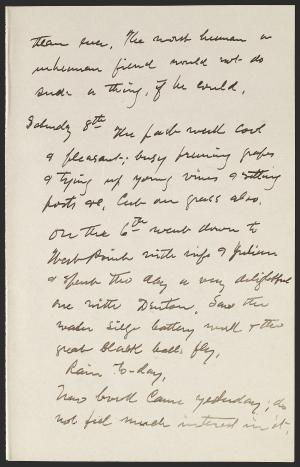 than ever. The most human or
inhuman fiend would not do
such a thing, if he could.
Saturday 8th The past week cool
& pleasant; busy pruning grapes
& tying up young vines & setting
posts &c, Cut our grass also.
On the 6th went down to
West Point with wife & Julian
& spent the day a very delightful
one with Denton. Saw the
water siege battery work & the
great black balls fly.
Rain to-day.
New book came yesterday; do
not feel much interest in it.